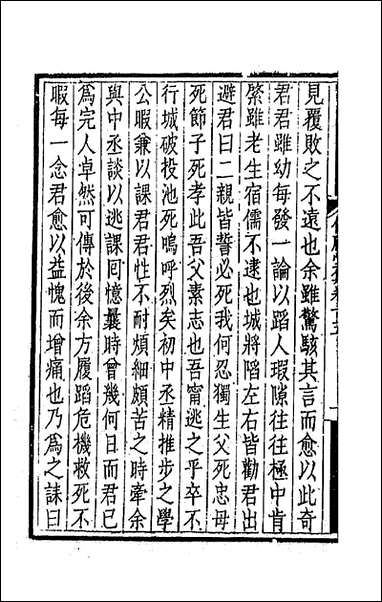 見覆敗之不遠也余雖驚駭其言而愈以此奇
君君雖幼每發一論以蹈人瑕隙往往極中肯
綮雖老生宿儒不逮也城將陷左右皆勸君出
避君曰二親皆誓必死我何忍獨生父死忠母
死節子死孝此吾父素志也吾甯逃之乎卒不
行城破投池死嗚呼烈矣初中丞精推步之學
公暇兼以課君君性不耐煩細頗苦之時牽余
與中丞談以逃課囘憶曩時曾幾何日而君已
為完人卓然可傳於後余方履蹈危機救死不
暇每一念君愈以益愧而增痛也乃為之誄曰